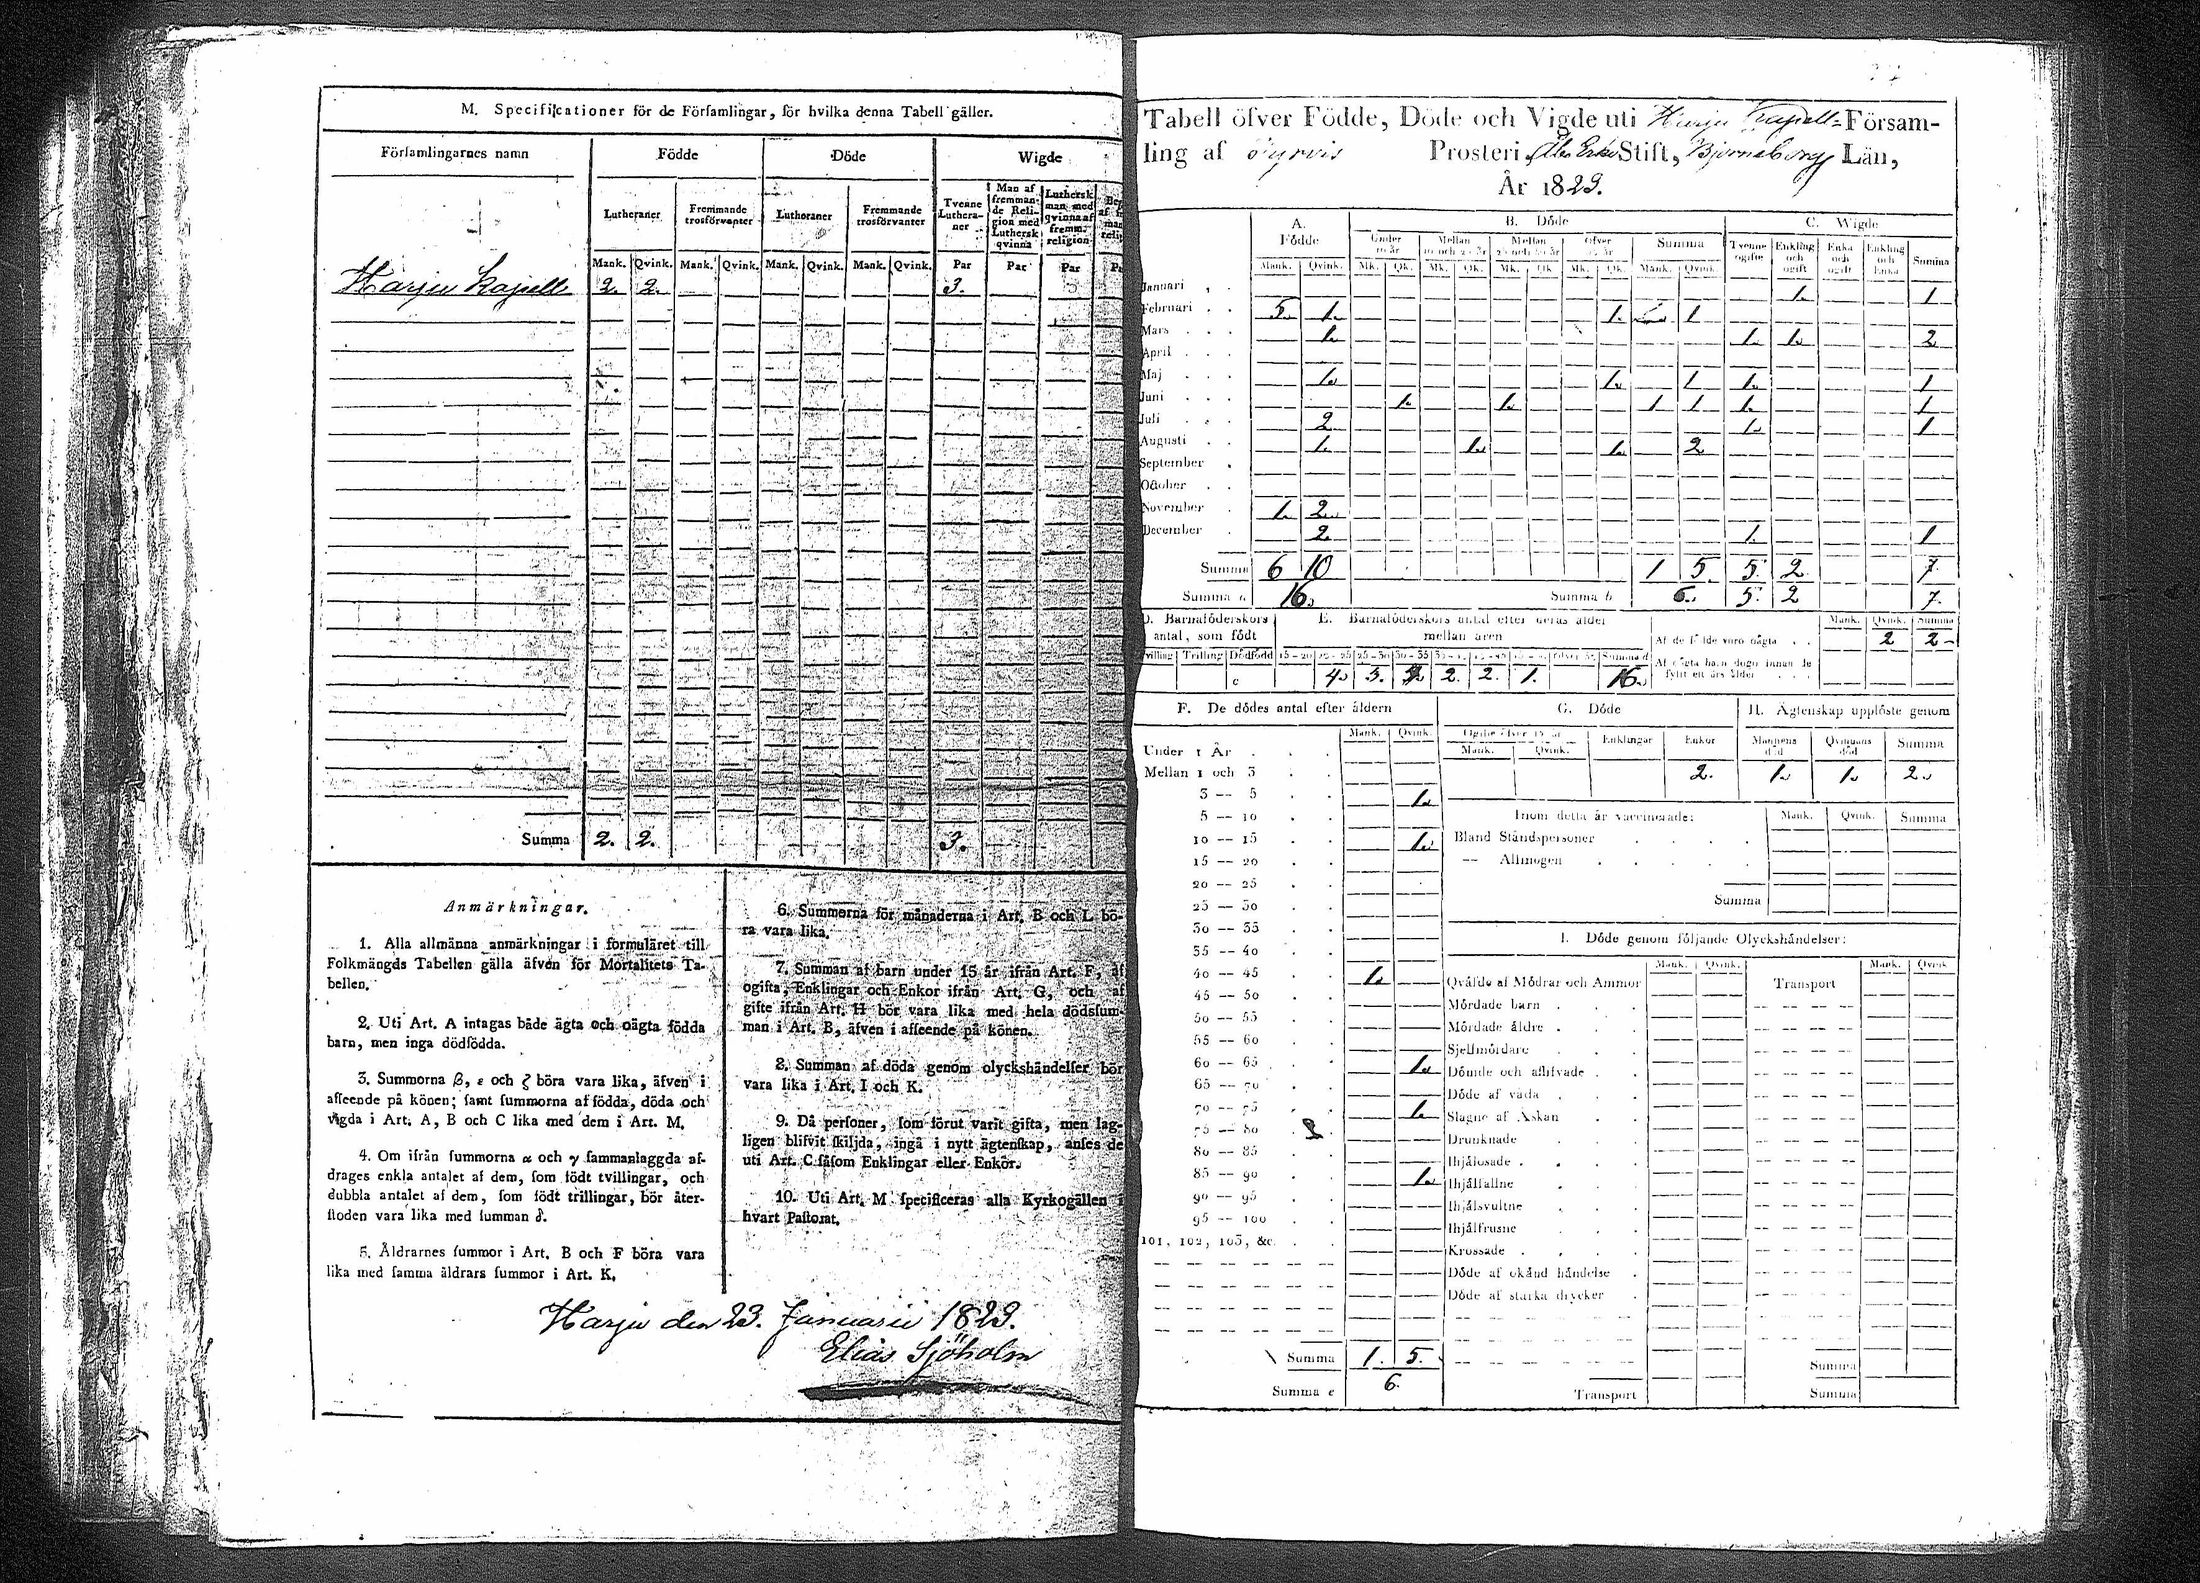 M. Specificationer för de Församlingar, för hvilka denna Tabell gäller.
Församlingarnes namn | Födde | Döde | Wigde
Lutheraner | Fremmande trosförvanter | Lutheraner | Fremmande trosförvanter | Tvenne Lutheraner | Man af fremmande Religion med Luthersk qvinna | Luthersk man med qvinna af fremm. religion
Mank. | Qvink. | Mank. | Qvink. | Mank. | Qvink. | Mank. | Qvink. | Par | Par | Par
Harju Kapell 2. 2. 3.
Summa 2. 2. 3.
Anmärkningar.
1. Alla allmänna anmärkningar i formuläret till
Folkmängds Tabellen gälla äfven för Mortalitets Ta-
bellen.
2. Uti Art. A intagas både ägta och oägta födda
barn, men inga dödfödda.
3. Summorna β, ε och ζ böra vara lika, äfven i
afseende på könen; samt summorna af födda, döda och
vigda i Art. A, B och C lika med dem i Art. M.
4. Om ifrån summorna α och γ sammanlaggda af-
drages enkla antalet af dem, som födt tvillingar, och
dubbla antalet af dem, som födt trillingar, bör åter-
stoden vara lika med summan δ.
5. Åldrarnes summor i Art. B och F böra vara
lika med samma åldrars summor i Art. K.
6. Summorna för månaderna i Art. B och L bö-
ra vara lika.
7. Summan af barn under 15 år ifrån Art. F, af
ogifta, Enklingar och Enkor ifrån Art. G, och af
gifte ifrån Art. H bör vara lika med hela dödssum-
man i Art. B, äfven i afseende på könen.
8. Summan af döda genom olyckshändelser bör
vara lika i Art. I och K.
9. Då personer, som förut varit gifta, men lag-
ligen blifvit skiljda, ingå i nytt ägtenskap, anses de
uti Art. C såsom Enklingar eller Enkor.
10. Uti Art. M specificeras alla Kyrkogällen i
hvart Pastorat.
Harju den 23. Januarii 1829.
Elias Sjöholm
Tabell öfver Födde, Döde och Vigde uti Harju Kapell-Försam-
ling af Tyrvis Prosteri, Åbo Erke Stift, Björneborgs Län,
År 1829.
A. Födde | B. Döde | C. Wigde
Under 10 år | Mellan 10 och 25 år | Mellan 25 och 50 år | Öfver 50 år | Summa | Tvenne ogifte | Enkling och ogift | Enka och ogift | Enkling och Enka | Summa
Mank. | Qvink. | Mk. | Qk. | Mk. | Qk. | Mk. | Qk. | Mk. | Qk. | Mank. | Qvink.
Januari 1. 1
Februari 5. 1. 1. 1
Mars 1. 1. 1. 2
April
Maj 1. 1. 1 1. 1
Juni 1. 1. 1 1 1. 1
Juli 2. 1. 1
Augusti 1. 1. 1. 2
September
October
November 1. 2.
December 2. 1. 1
Summa 6 10 1 5. 5. 2 7.
Summa a 16. Summa b 6. 5. 2 7.
D. Barnaföderskors antal, som födt
Tvilling | Trilling | Dödfödd
c
E. Barnaföderskors antal efter deras ålder
mellan åren
15-20 | 20-25 | 25-30 | 30-35 | 35-40 | 40-45 | 45-50 | öfver 50 | Summa d
4. 2. 2. 1. 16.
Mank. | Qvink. | Summa
Af de födde voro oägta 2 2
Af oägta barn dogo innan de
fyllt ett års ålder
F. De dödes antal efter åldern
Mank. | Qvink.
Under 1 År
Mellan 1 och 3
3 -- 5 1.
5 -- 10
10 -- 15 1.
15 -- 20
20 -- 25
25 -- 30
30 -- 35
35 -- 40
40 -- 45 1.
45 -- 50
50 -- 55
55 -- 60
60 -- 65 1.
65 -- 70
70 -- 75 1.
75 -- 80
80 -- 85
85 -- 90 1.
90 -- 95
95 -- 100
101, 102, 103, &c.
Summa 1. 5.
Summa e 6.
G. Döde
Ogifte öfver 15 år | Enklingar | Enkor
Mank. | Qvink.
2.
H. Ägtenskap upplöste genom
Mannens död | Qvinnans död | Summa
1. 1. 2.
Inom detta år vaccinerade: Mank. | Qvink. | Summa
Bland Ståndspersoner
-- Allmogen
Summa
I. Döde genom följande Olyckshändelser:
Mank. | Qvink. | Mank. | Qvink.
Qväfde af Mödrar och Ammor Transport
Mördade barn
Mördade äldre
Sjelfmördare
Dömde och aflifvade
Döde af våda
Slagne af Åskan
Drunknade
Ihjälosade
Ihjälfallne
Ihjälsvultne
Ihjälfrusne
Krossade
Döde af okänd händelse
Döde af starka drycker
Summa
Transport Summa